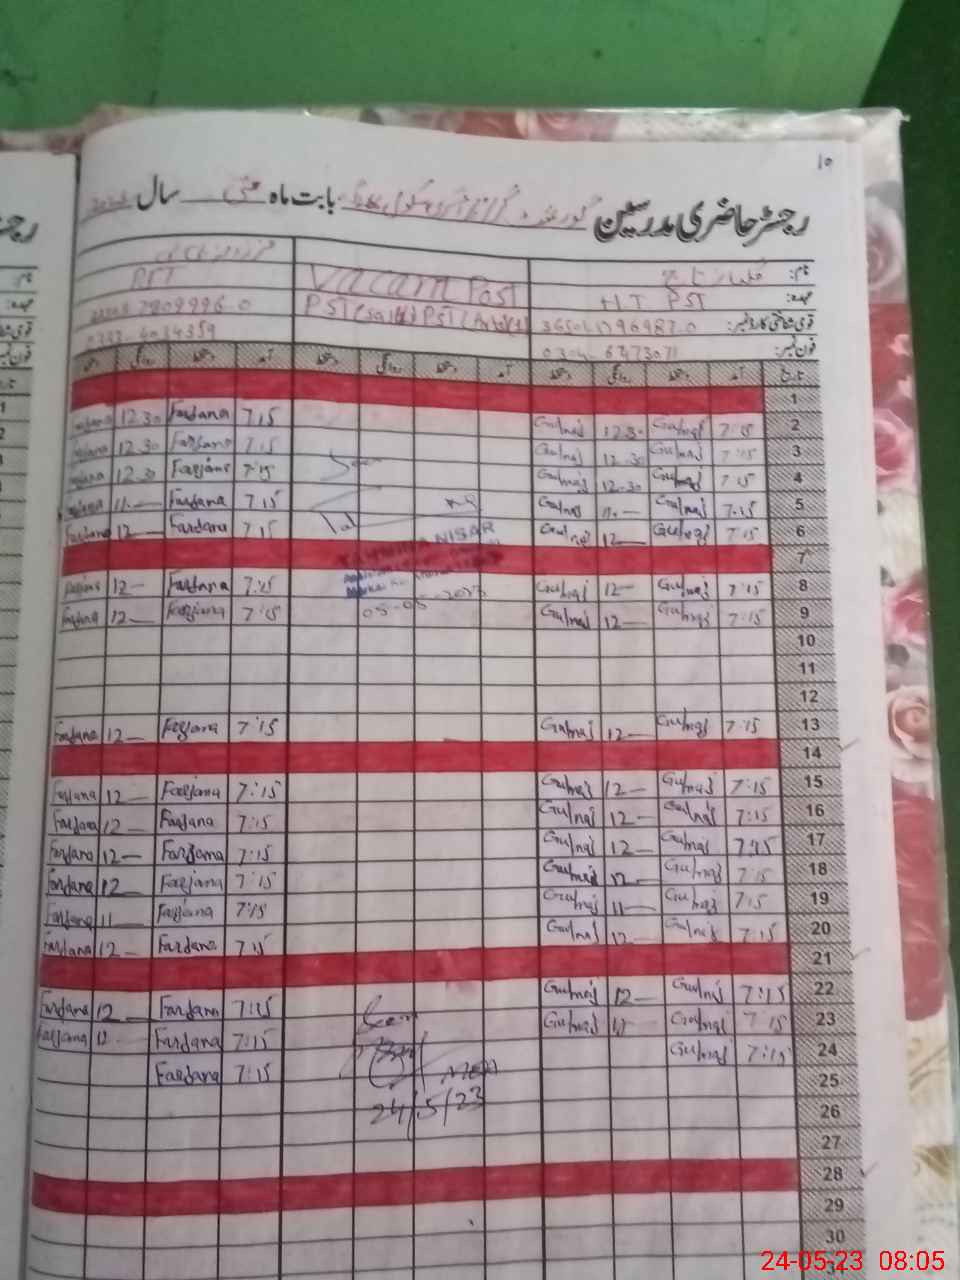 10
رجسٹر حاضری مدرسین گورنمنٹ گرلز پرائمری سکول بابت ماہ مئی سال
نام:
عہدہ: HT PST Vacant Post PET
قومی شناختی کارڈ نمبر: PST PST
فون نمبر: 0304-6473071
تاریخ آمد دستخط روانگی دستخط آمد دستخط روانگی دستخط آمد دستخط روانگی
1
2 7:15 Gulnaj 12.30 Gulnaj 7.15 Farjana 12.30 Farjana
3 7:15 Gulnaj 12.30 Gulnaj 7.15 Farjana 12.30 Farjana
4 7:15 Gulnaj 12.30 Gulnaj 7:15 Farjana 12.30 Farjana
5 7:15 Gulnaj 11.— Gulnaj 7.15 Farjana 11.— Farjana
6 7:15 Gulnaj 12— Gulnaj 7.15 Farjana 12— Farjana
7
NISAR
8 7:15 Gulnaj 12— Gulnaj 7:15 Farjana 12— Farjana
9 7:15 Gulnaj 12— Gulnaj 05-05-2023 7:15 Farjana 12— Farjana
10
11
12
13 7:15 Gulnaj 12— Gulnaj 7:15 Farjana 12— Farjana
14
15 7:15 Gulnaj 12— Gulnaj 7:15 Farjana 12— Farjana
16 7:15 Gulnaj 12— Gulnaj 7:15 Farjana 12— Farjana
17 7:15 Gulnaj 12— Gulnaj 7:15 Farjana 12— Farjana
18 7:15 Gulnaj 12— Gulnaj 7:15 Farjana 12— Farjana
19 7:15 Gulnaj 11— Gulnaj 7:15 Farjana 11— Farjana
20 7:15 Gulnaj 12— Gulnaj 7:15 Farjana 12— Farjana
21
22 7:15 Gulnaj 12— Gulnaj 7:15 Farjana 12— Farjana
23 7:15 Gulnaj 12 Gulnaj 7:15 Farjana 12— Farjana
24 7:15 Gulnaj 7:15 Farjana
25
26 24/5/23
27
28
29
30
31
24-05-23 08:05